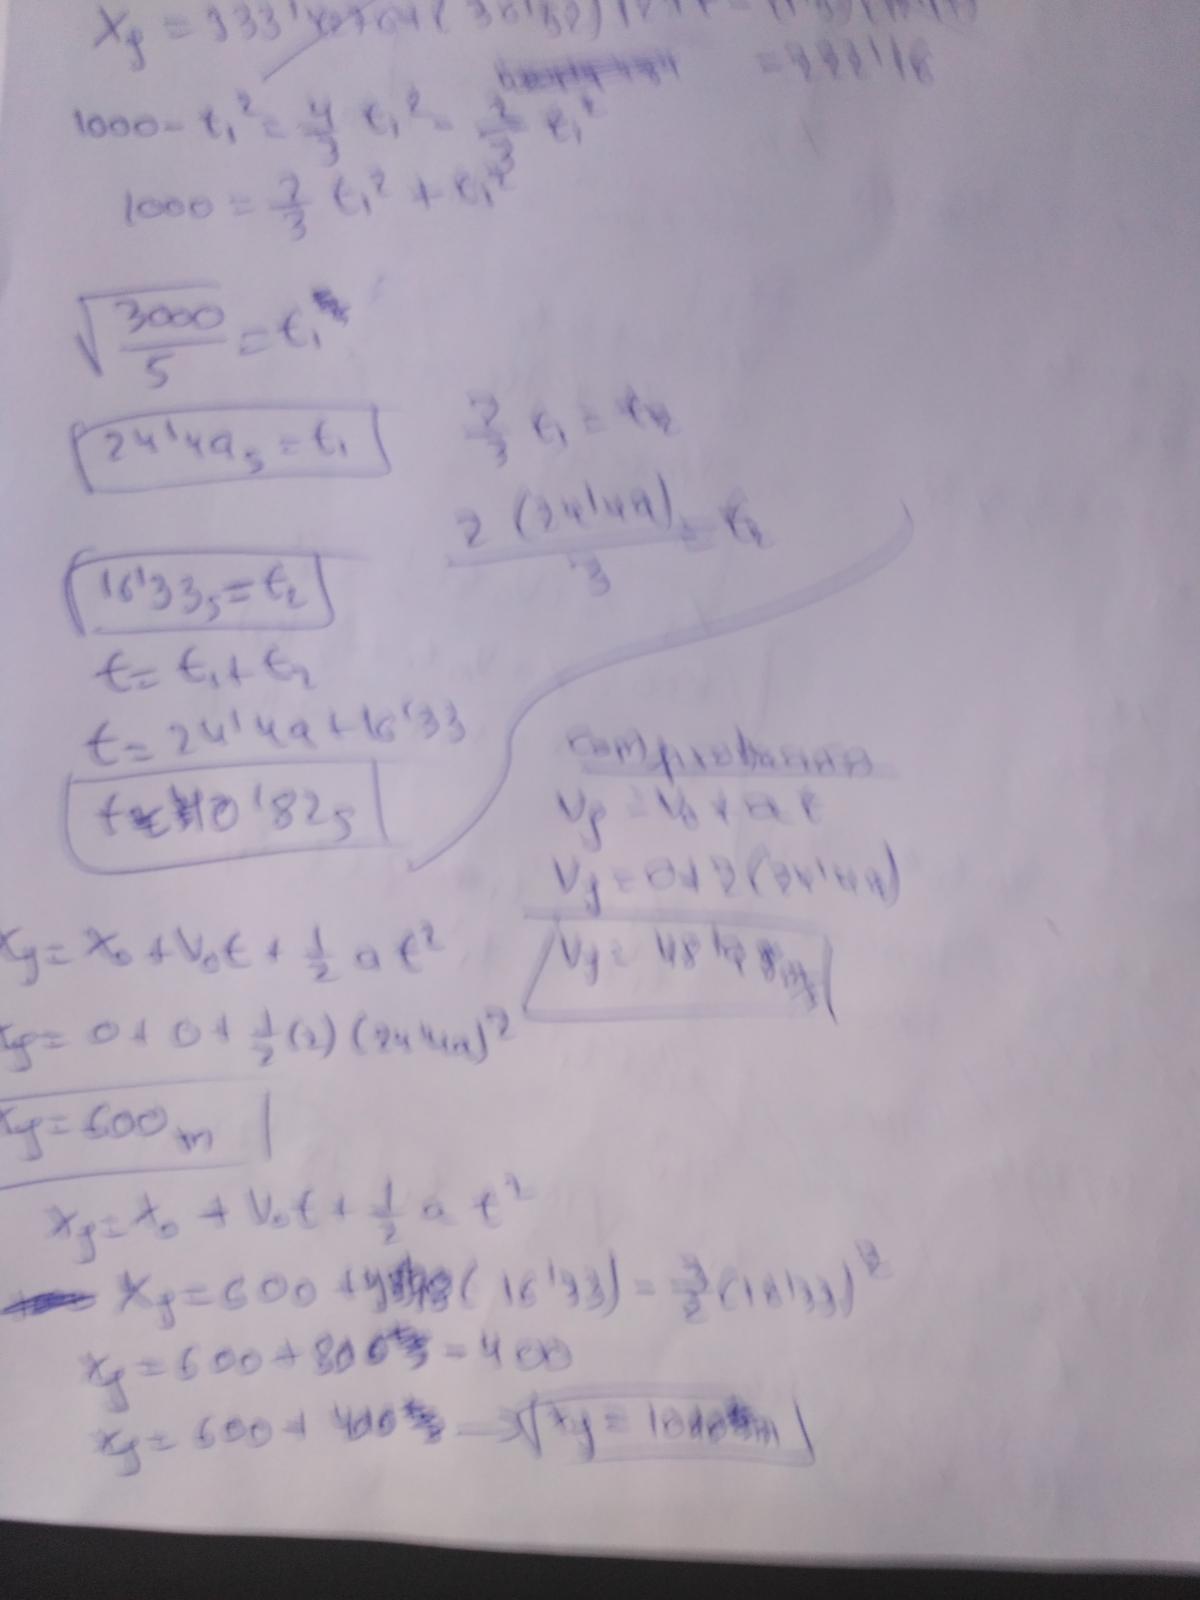 1000 - t₁² = 4/3 t₁² - 2/3 t₁²
1000 = 2/3 t₁² + t₁²
√(3000/5) = t₁
24'49s = t₁
2/3 t₁ = t₂
2 (24'49) / 3 = t₂
16'33s = t₂
t = t₁ + t₂
t = 24'49 + 16'33
t = 40'82s
comprobamos
Vf = V₀ + a t
Vf = 0 + 2 (24'49)
Vf = 48'98 m/s
xf = x₀ + V₀t + 1/2 a t²
xf = 0 + 0 + 1/2 (2) (24'49)²
xf = 600 m
xf = x₀ + V₀t + 1/2 a t²
xf = 600 + (16'33) - 3/2 (16'33)²
xf = 600 + 800 - 400
xf = 600 + 400 → xf = 1000 m